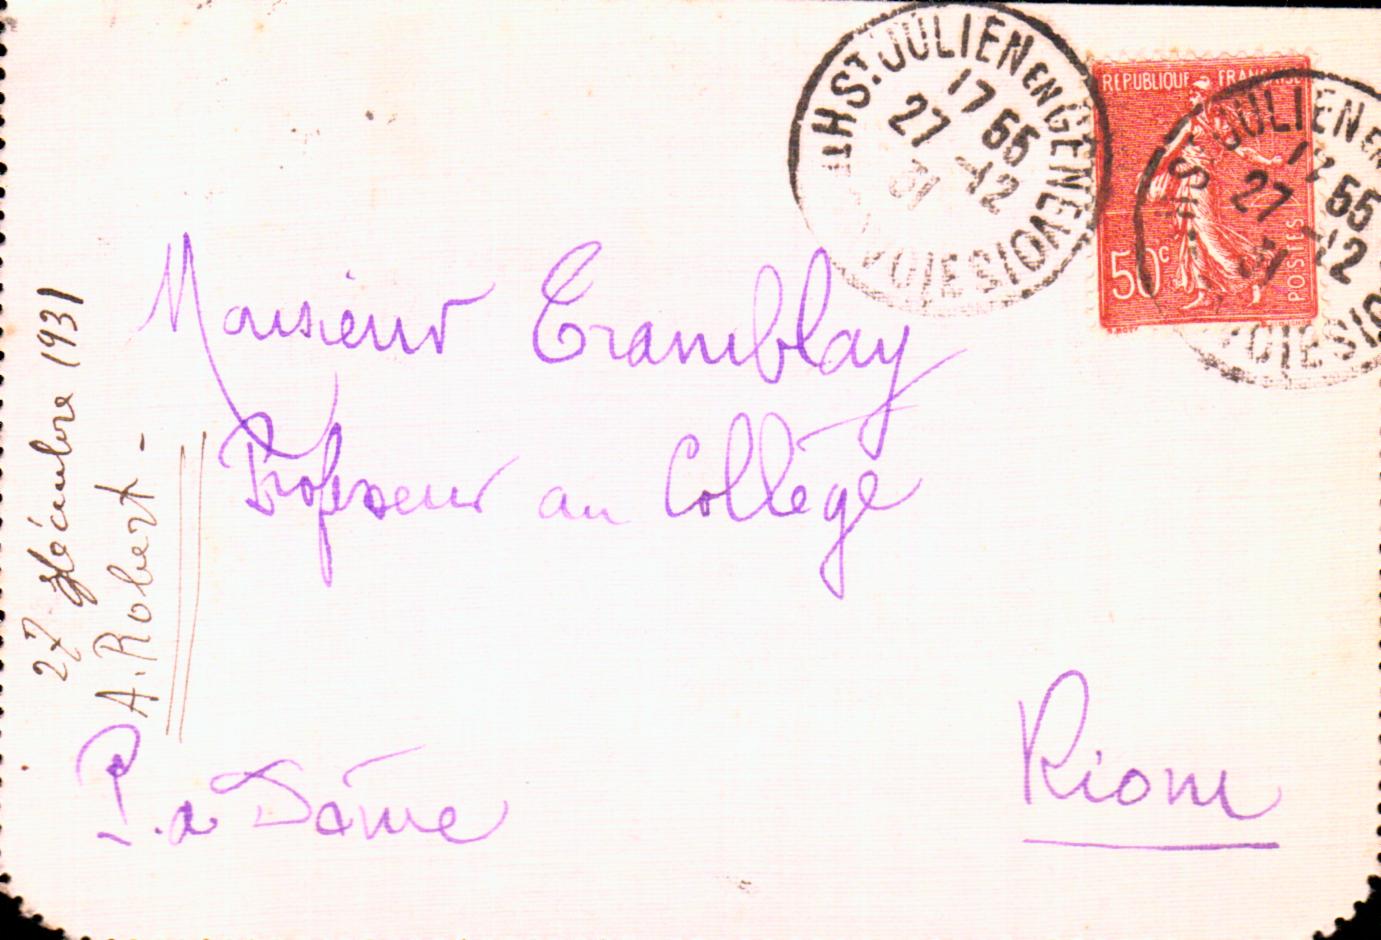 St. JULIEN EN GENEVOIS
17 55
27 -12
31
REPUBLIQUE FRANÇAISE
50c
POSTES
St JULIEN EN
17 55
27 -12
31
Monsieur Tramblay
Professeur au Collège
Riom
P. de Dôme
27 décembre 1931
A. Robert -